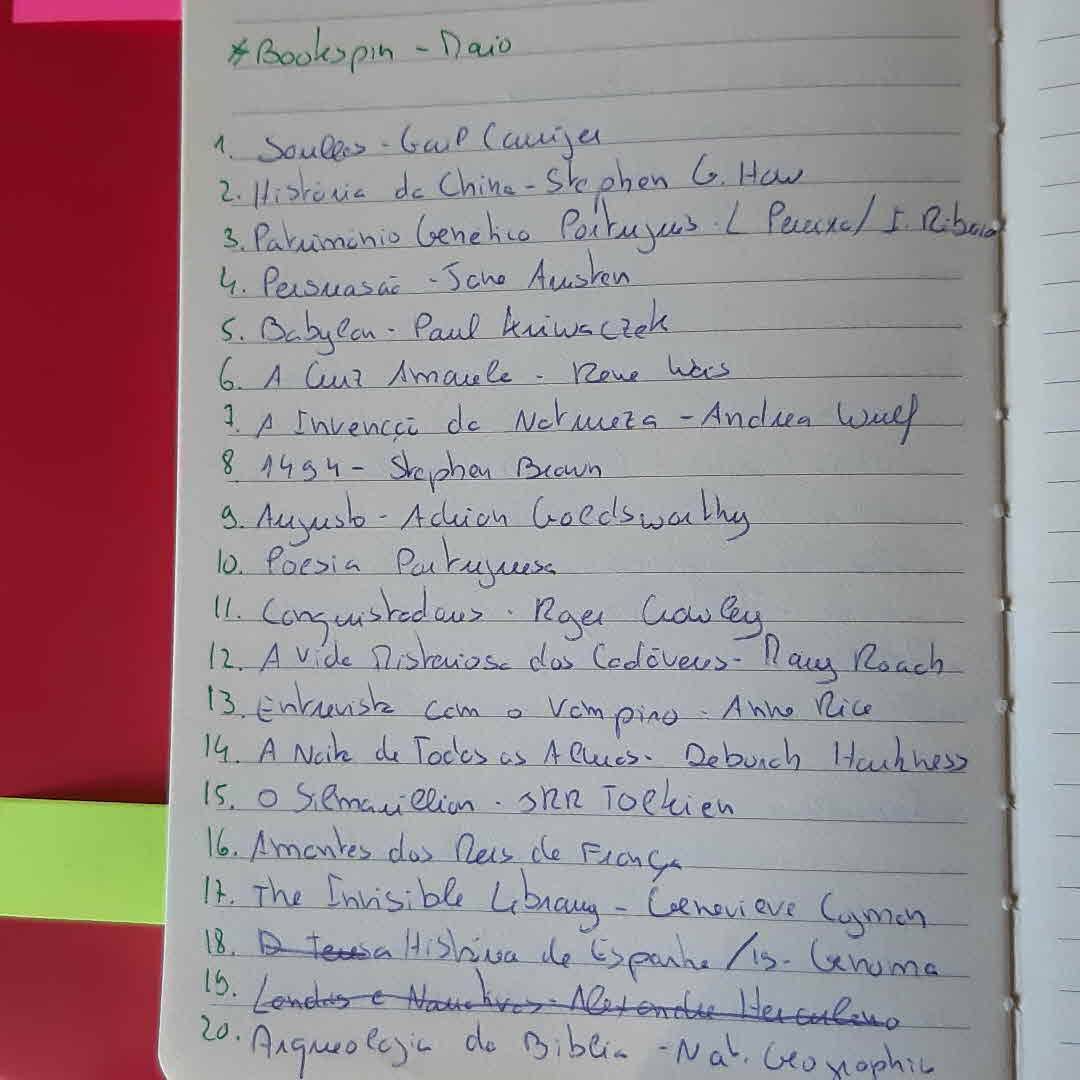 #Bookspin - Maio
1. Soulless - Gail Carriger
2. História da China - Stephen G. Haw
3. Património Genético Português - L Pereira / F. Ribeiro
4. Persuasão - Jane Austen
5. Babylon - Paul Kriwaczek
6. A Cruz Amarela - Rene Weis
7. A Invenção da Natureza - Andrea Wulf
8 1494 - Stephen Brown
9. Augusto - Adrian Goldsworthy
10. Poesia Portuguesa
11. Conquistadores - Roger Crowley
12. A Vida Misteriosa dos Cadáveres - Mary Roach
13. Entrevista com o Vampiro - Anne Rice
14. A Noite de Todas as Almas - Deborah Harkness
15. O Silmarillion - JRR Tolkien
16. Amantes dos Reis de França
17. The Invisible Library - Genevieve Cogman
18. D Teresa História de Espanha / 19 - Genoma
19. Lendas e Narrativas - Alexandre Herculano
20. Arqueologia da Bíblia - Nat. Geographic